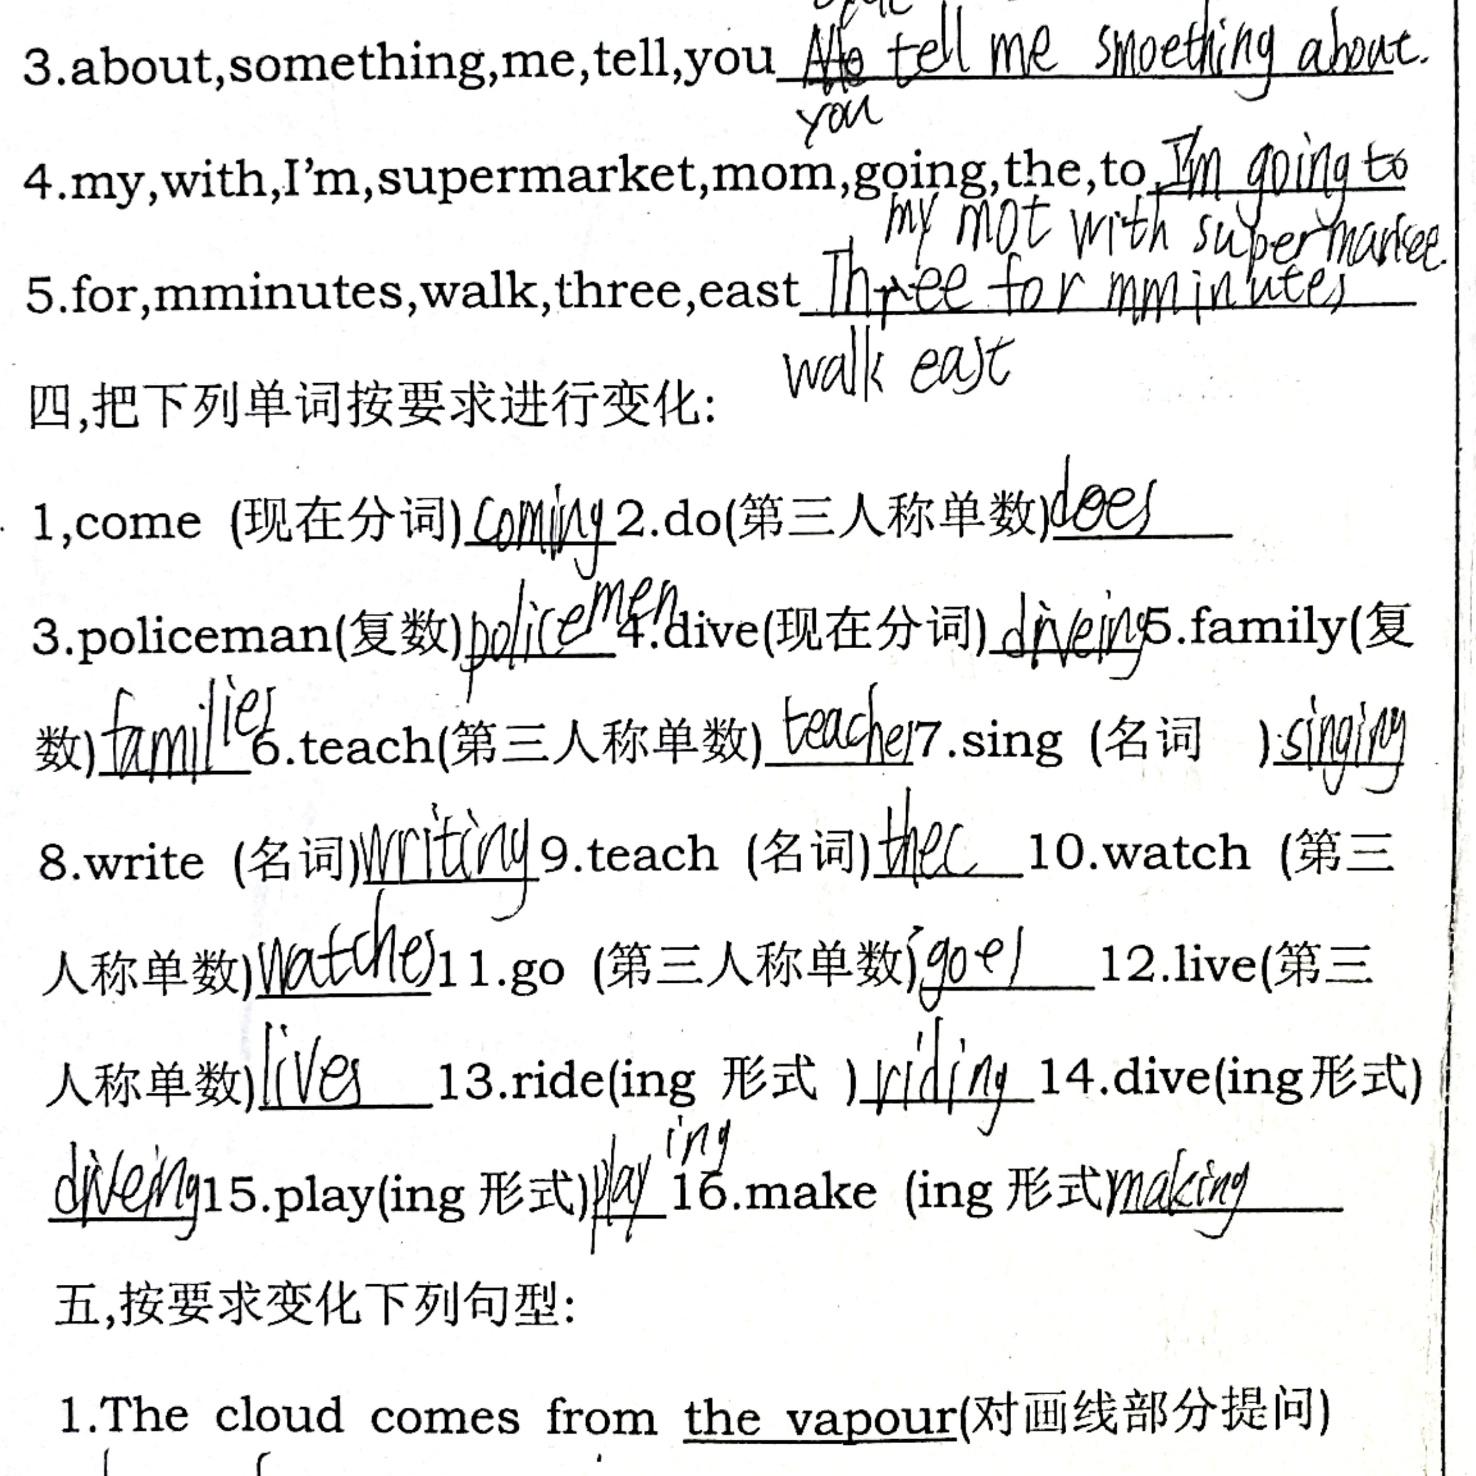 3.about,something,me,tell,you tell me smoething about.
you
4.my,with,I'm,supermarket,mom,going,the,to I'm going to
my mot with supermarkee.
5.for,mminutes,walk,three,east Three for mminutes
walk east
四,把下列单词按要求进行变化:
1,come (现在分词)coming 2.do(第三人称单数)does
3.policeman(复数)policemen 4.dive(现在分词)diveing 5.family(复
数)families 6.teach(第三人称单数)teaches 7.sing (名词 )singing
8.write (名词)writing 9.teach (名词) 10.watch (第三
人称单数)watches 11.go (第三人称单数)goes 12.live(第三
人称单数)lives 13.ride(ing 形式 )riding 14.dive(ing形式)
diveing 15.play(ing 形式)playing 16.make (ing 形式)making
五,按要求变化下列句型:
1.The cloud comes from the vapour(对画线部分提问)